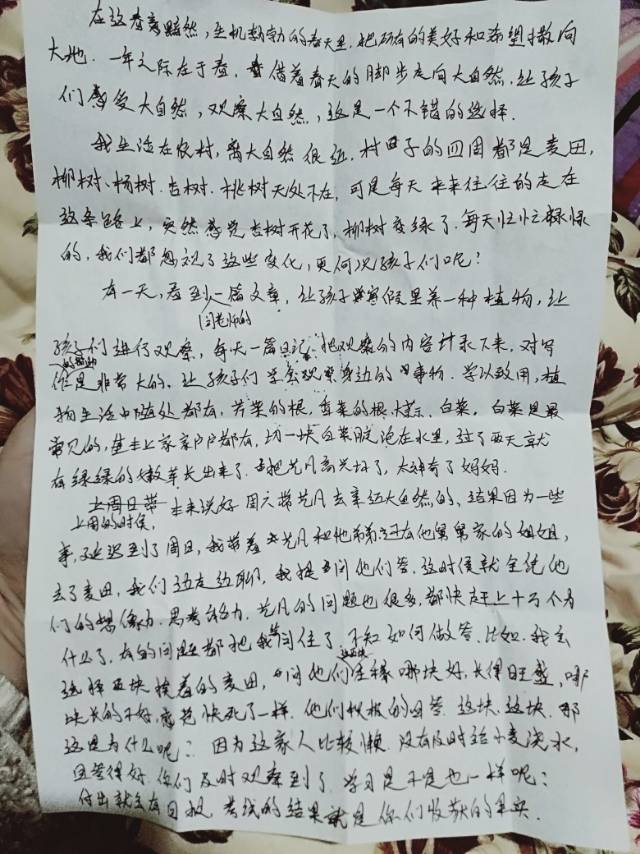 在这春意黯然,生机勃勃的春天里,把所有的美好和希望撒向
大地.一年之际在于春,借着春天的脚步走向大自然,让孩子
们感受大自然,观察大自然,这是一个不错的选择.
我生活在农村,离大自然很近,村子的四周都是麦田,
柳树、杨树.杏树.桃树无处不在,可是每天来来往往的走在
这条路上,突然感觉杏树开花了,柳树变绿了.每天忙忙碌碌
的,我们都忽视了这些变化,更何况孩子们呢?
有一天,看到一篇文章,让孩子寒假里养一种植物,让
闫老师的
孩子们进行观察,每天一篇日记,把观察的内容计录下来,对写
作是非常大的.让孩子们学会观察身边的事物.学以致用,植
的帮助
物生活中随处都有,芹菜的根,香菜的根,蒜、白菜,白菜是最
常见的,基本上家家户户都有,切一块白菜腚泡在水里,过了两天就
有绿绿的嫩芽长出来了.把艺凡高兴坏了,太神奇了妈妈.
上周的时候,本来说好周六带艺凡去亲近大自然的、结果因为一些
事,延迟到了周日,我带着艺凡和他弟弟还有他舅舅家的姐姐,
去了麦田,我们边走边聊,我提问他们答.这时侯就全凭他
们的想像力.思考能力.艺凡的问题也很多.都快赶上十万个为
什么了,有的问题都把我问住了,不知如何做答.比如.我会
选择两块挨着的麦田,问他们这块哪块好,长得旺盛,哪
块长的不好,感觉快死了一样.他们积极的回答.这块,这块.那
这是为什么呢?因为这家人比较懒.没有及时给小麦浇水,
回答得好.你们及时观察到了.学习是不是也一样呢?
付出就会有回报.考试的结果就是你们收获的果实.